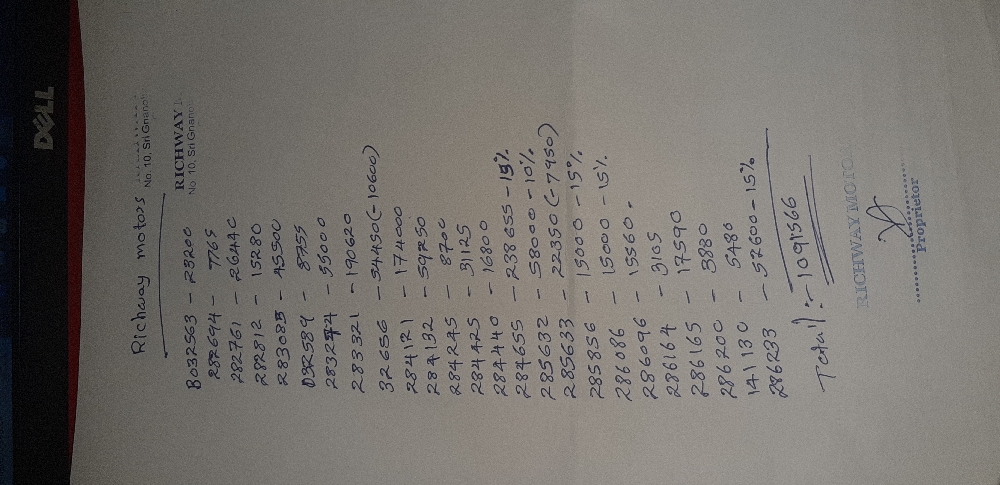 DELL
Richway motors
No. 10, Sri Gnan
RICHWAY
No. 10, Sri Gnan
B032563 - 23200
282694 - 7765
282761 - 26440
282812 - 15280
283085 - 45500
D32589 - 8755
283274 - 55000
283321 - 190620
32656 - 54450(-10600)
284121 - 174000
284132 - 59250
284245 - 8700
284425 - 31125
284440 - 16800
284655 - 238655-15%
285632 - 58000-10%
285633 - 22350(-7950)
285856 - 15000-15%
286086 - 15000-15%
286096 - 15560-
286164 - 3105
286165 - 17590
286200 - 3880
141130 - 5480
286233 - 52600-15%
Total:- 1091566
RICHWAY MOTO
Proprietor